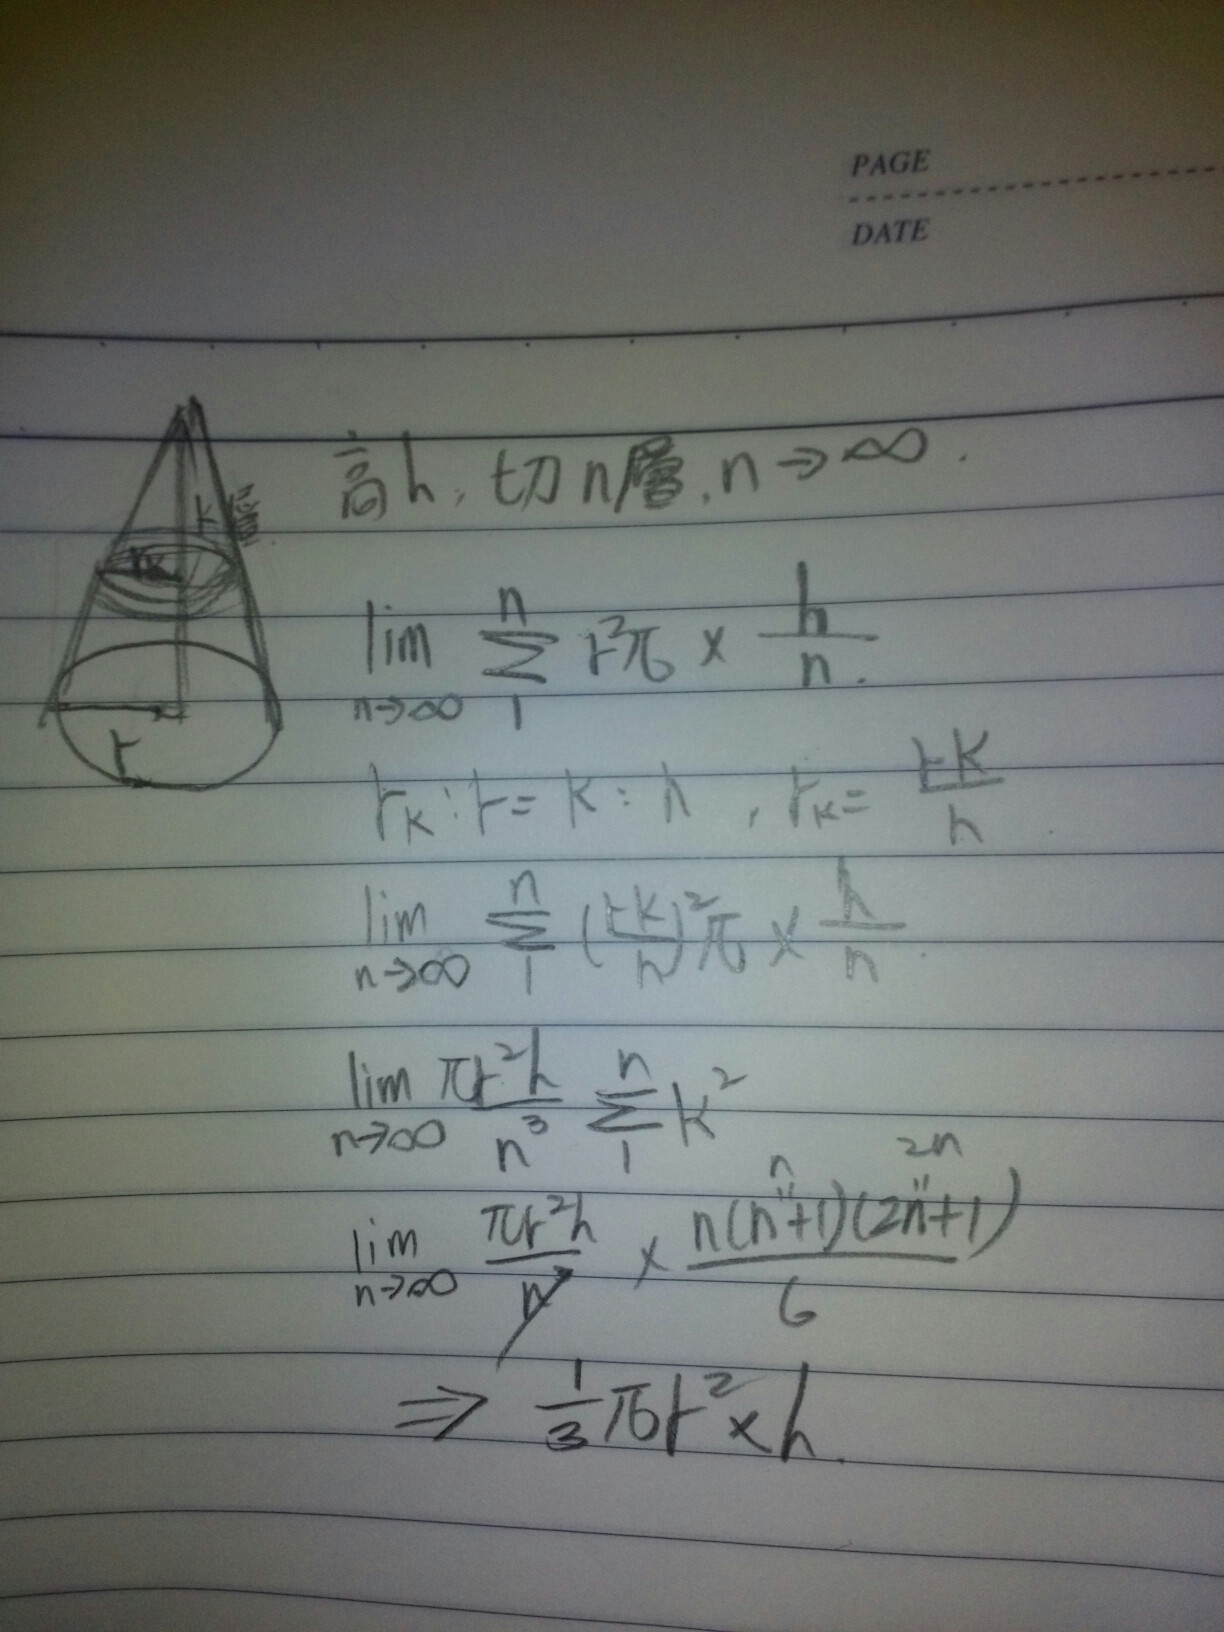 PAGE
DATE
高h, 切n層, n→∞.
k層
r_k
r
lim n→∞ Σ_1^n r²π × h/n.
r_k : r = k : n , r_k = rk/n
lim n→∞ Σ_1^n (rk/n)²π × h/n.
lim n→∞ πr²h/n³ Σ_1^n k²
n 2n
lim n→∞ πr²h/n³ × n(n+1)(2n+1)/6
⇒ 1/3 πr² × h.